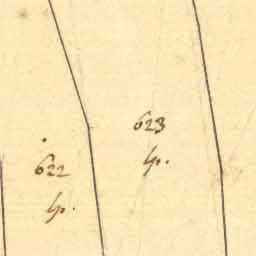 623
lp.
622
lp.